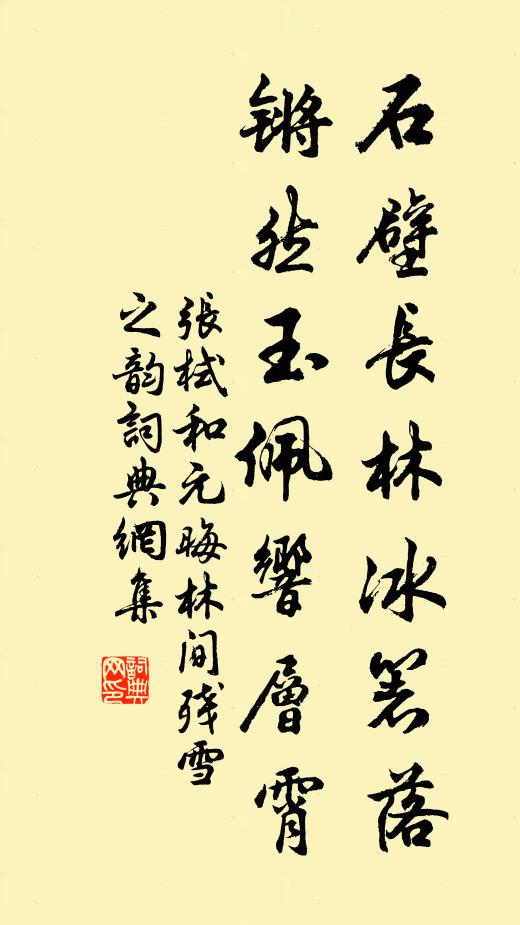 石壁長林冰箸落
鏘然玉佩響層霄
張栻和元晦林間残雪
之韵詞典網集
詞典網印